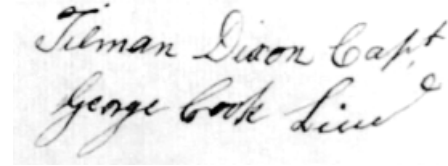 Tilman Dixon Capt
George Cook Lieu